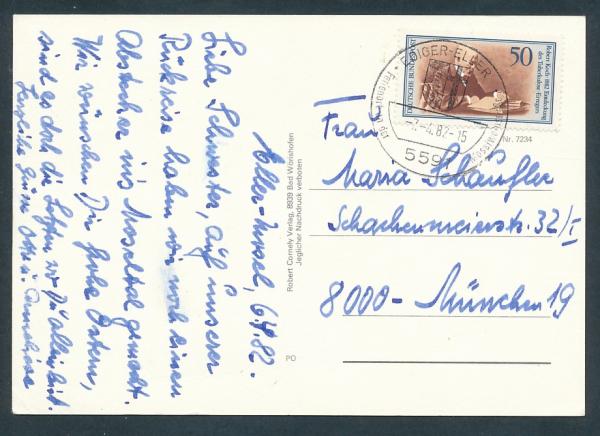 Eller-Mosel, 6.4.82.
Liebe Schwester, auf unserer
Rückreise haben wir noch einen
Abstecher ins Moseltal gemacht.
Wir wünschen Dir frohe Ostern,
sind es doch die Ostern wo Du allein bist.
Herzliche Grüße
Robert Cornely Verlag, 8939 Bad Wörishofen
Jeglicher Nachdruck verboten
PO
Nr. 7234
DEUTSCHE BUNDESPOST
50
Robert Koch · 1882 Entdeckung
des Tuberkulose Erregers
EDIGER-ELLER
-7.-4.82-15
559
Frau
Maria Schäufler
Schachenmeierstr. 32/I
8000-München 19